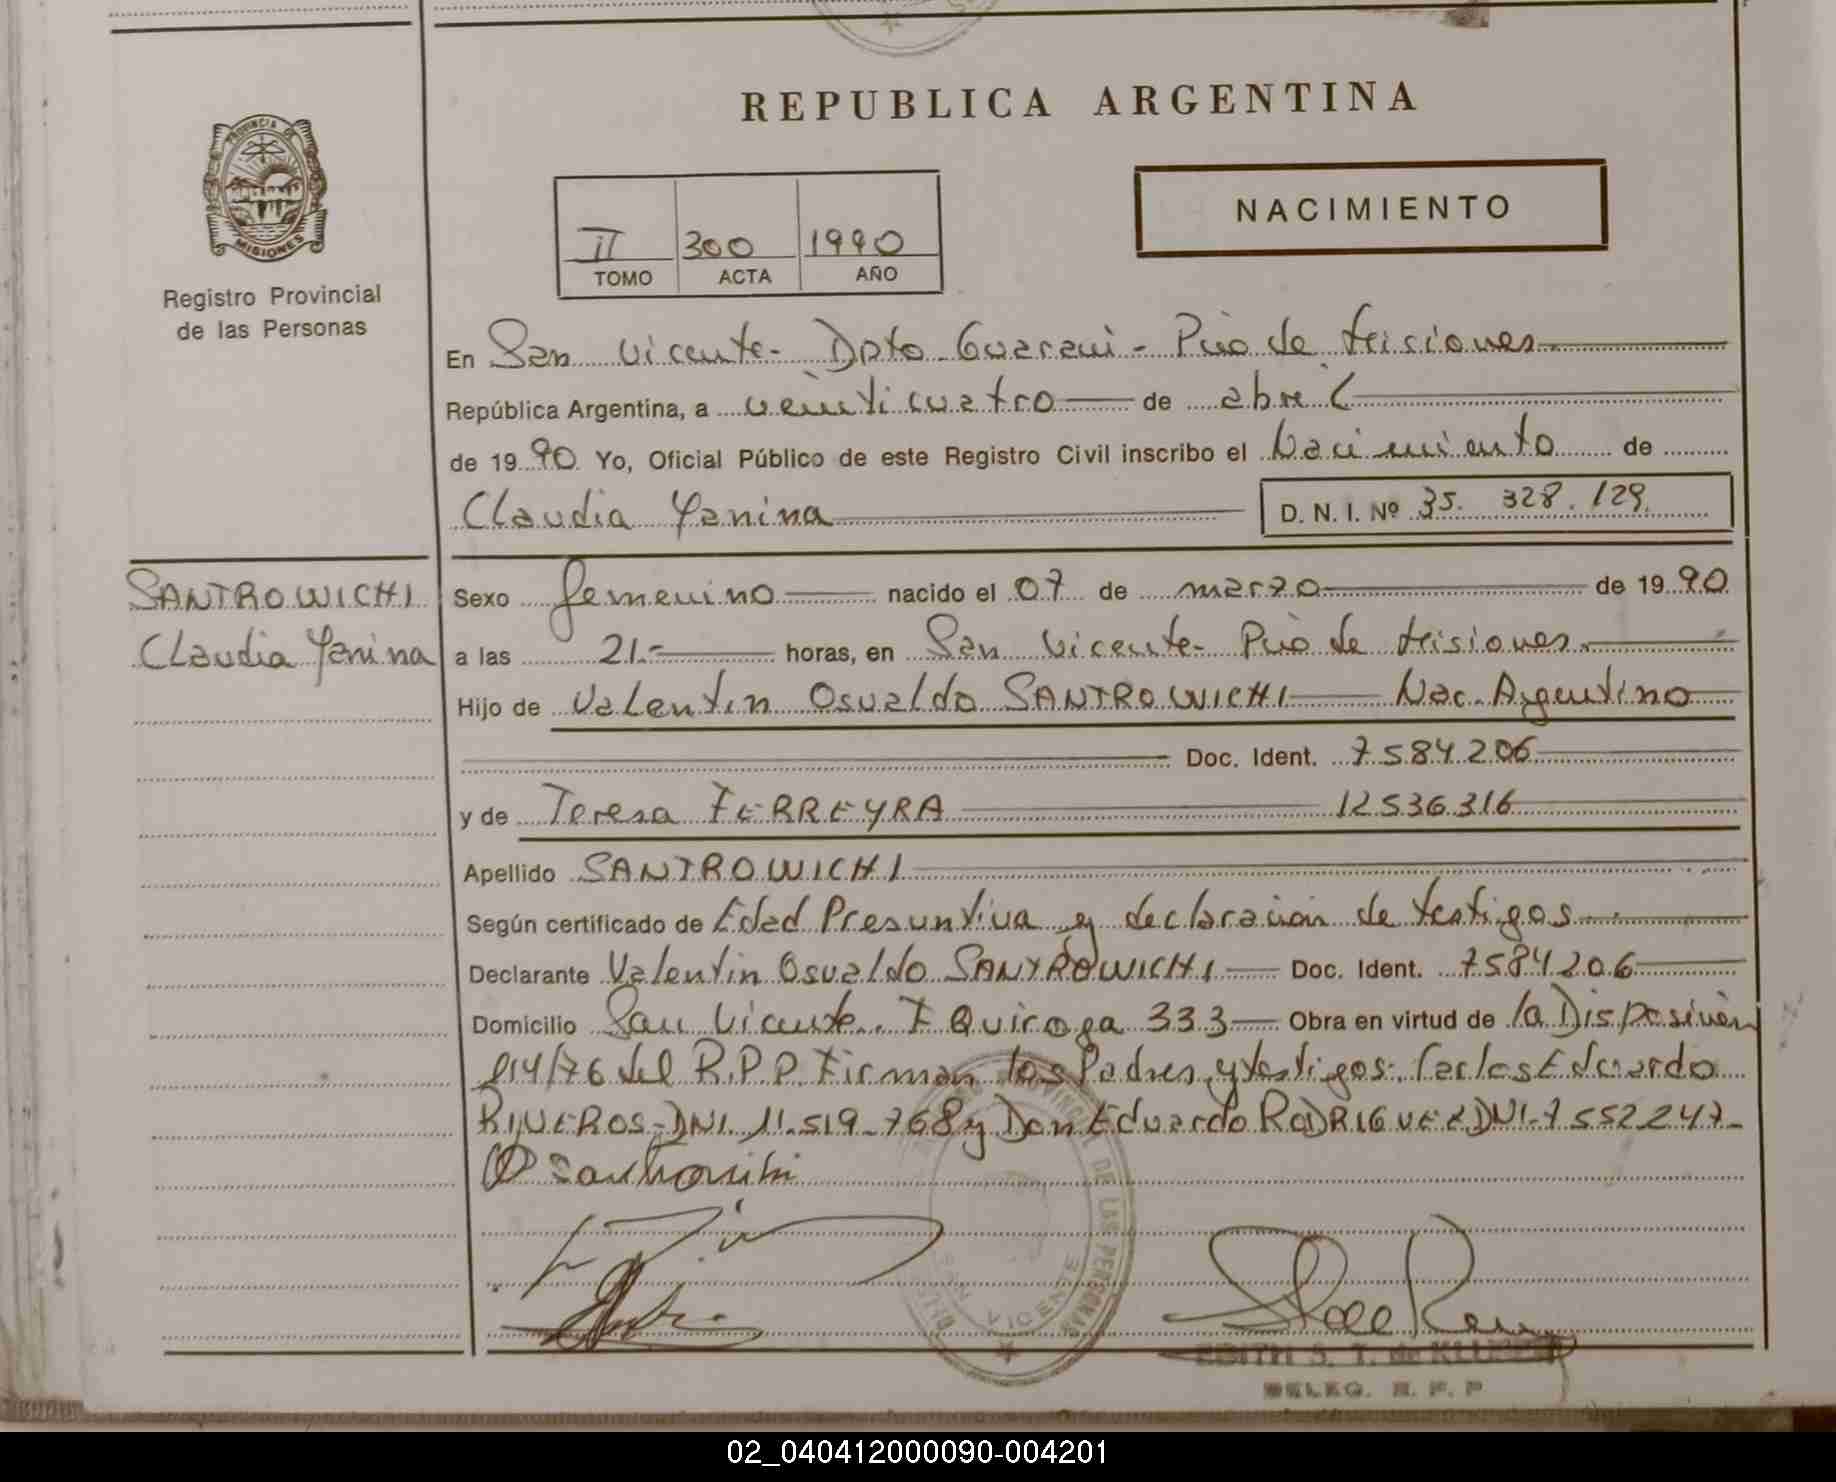 REPUBLICA ARGENTINA
PROVINCIA DE
MISIONES
Registro Provincial
de las Personas
NACIMIENTO
II 300 1990
TOMO ACTA AÑO
En San Vicente - Dpto Guarani - Pcio de Misiones
República Argentina, a veinticuatro de abril
de 1990 Yo, Oficial Público de este Registro Civil inscribo el Nacimiento de
Claudia Yanina D. N. I. Nº 35. 328. 129.
SANTROWICHI
Claudia Yanina
Sexo femenino nacido el 07 de marzo de 1990
a las 21.- horas, en San Vicente - Pcio de Misiones.
Hijo de Valentin Osvaldo SANTROWICHI Nac. Argentino
Doc. Ident. 7584206
y de Teresa FERREYRA 12536316
Apellido SANTROWICHI
Según certificado de Edad Presuntiva y declaración de testigos
Declarante Valentin Osvaldo SANTROWICHI Doc. Ident. 7584206
Domicilio San Vicente. F Quiroga 333 Obra en virtud de la Disposición
014/76 del R.P.P. Firman los Padres y testigos: Carlos Eduardo
RIVEROS - DNI. 11.519.768 y Don Eduardo RODRIGUEZ DNI - 7552247 -
PROVINCIAL DE LAS PERSONAS
SAN VICENTE
EDITH S. T. de
DELEG. R. P. P
02_040412000090-004201